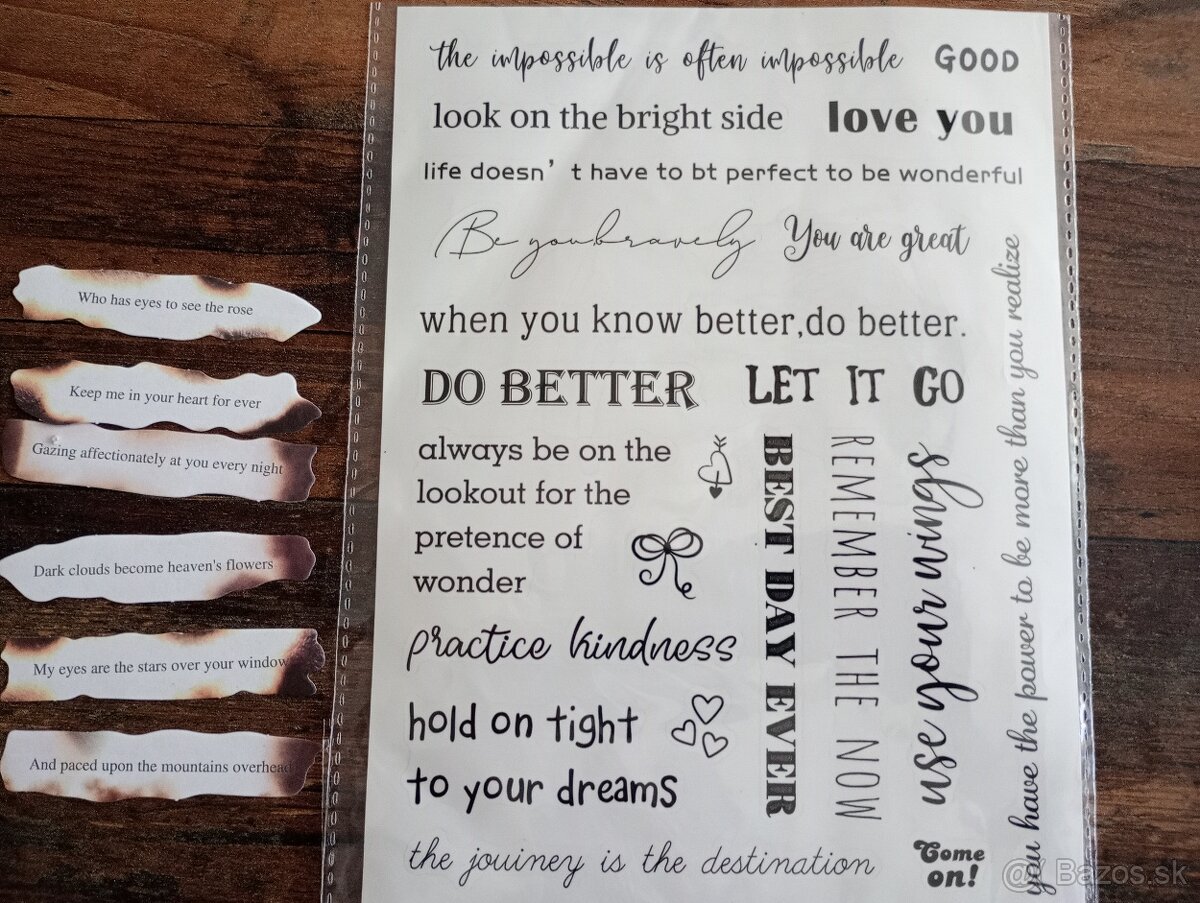 Who has eyes to see the rose
Keep me in your heart for ever
Gazing affectionately at you every night
Dark clouds become heaven's flowers
My eyes are the stars over your window
And paced upon the mountains overhead
the impossible is often impossible
GOOD
look on the bright side
love you
life doesn't have to bt perfect to be wonderful
Be youbravely
You are great
when you know better,do better.
DO BETTER
LET IT GO
always be on the
lookout for the
pretence of
wonder
practice kindness
hold on tight
to your dreams
the jouiney is the destination
BEST DAY EVER
REMEMBER THE NOW
use your wings
you have the power to be more than you realize
Come
on!
Bazos.sk